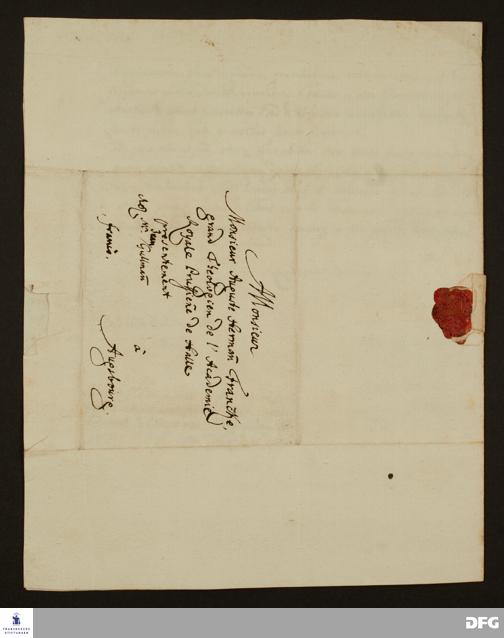 Monsieur
Monsieur Auguste Herman̅ Francke,
grand Théologien de l'Academie
Royale Prussiene de Halle
presentement
chez Mr. Jean Gullman̅
à
franco. Augsbourg.
FRANCKESCHE
STIFTUNGEN
DFG